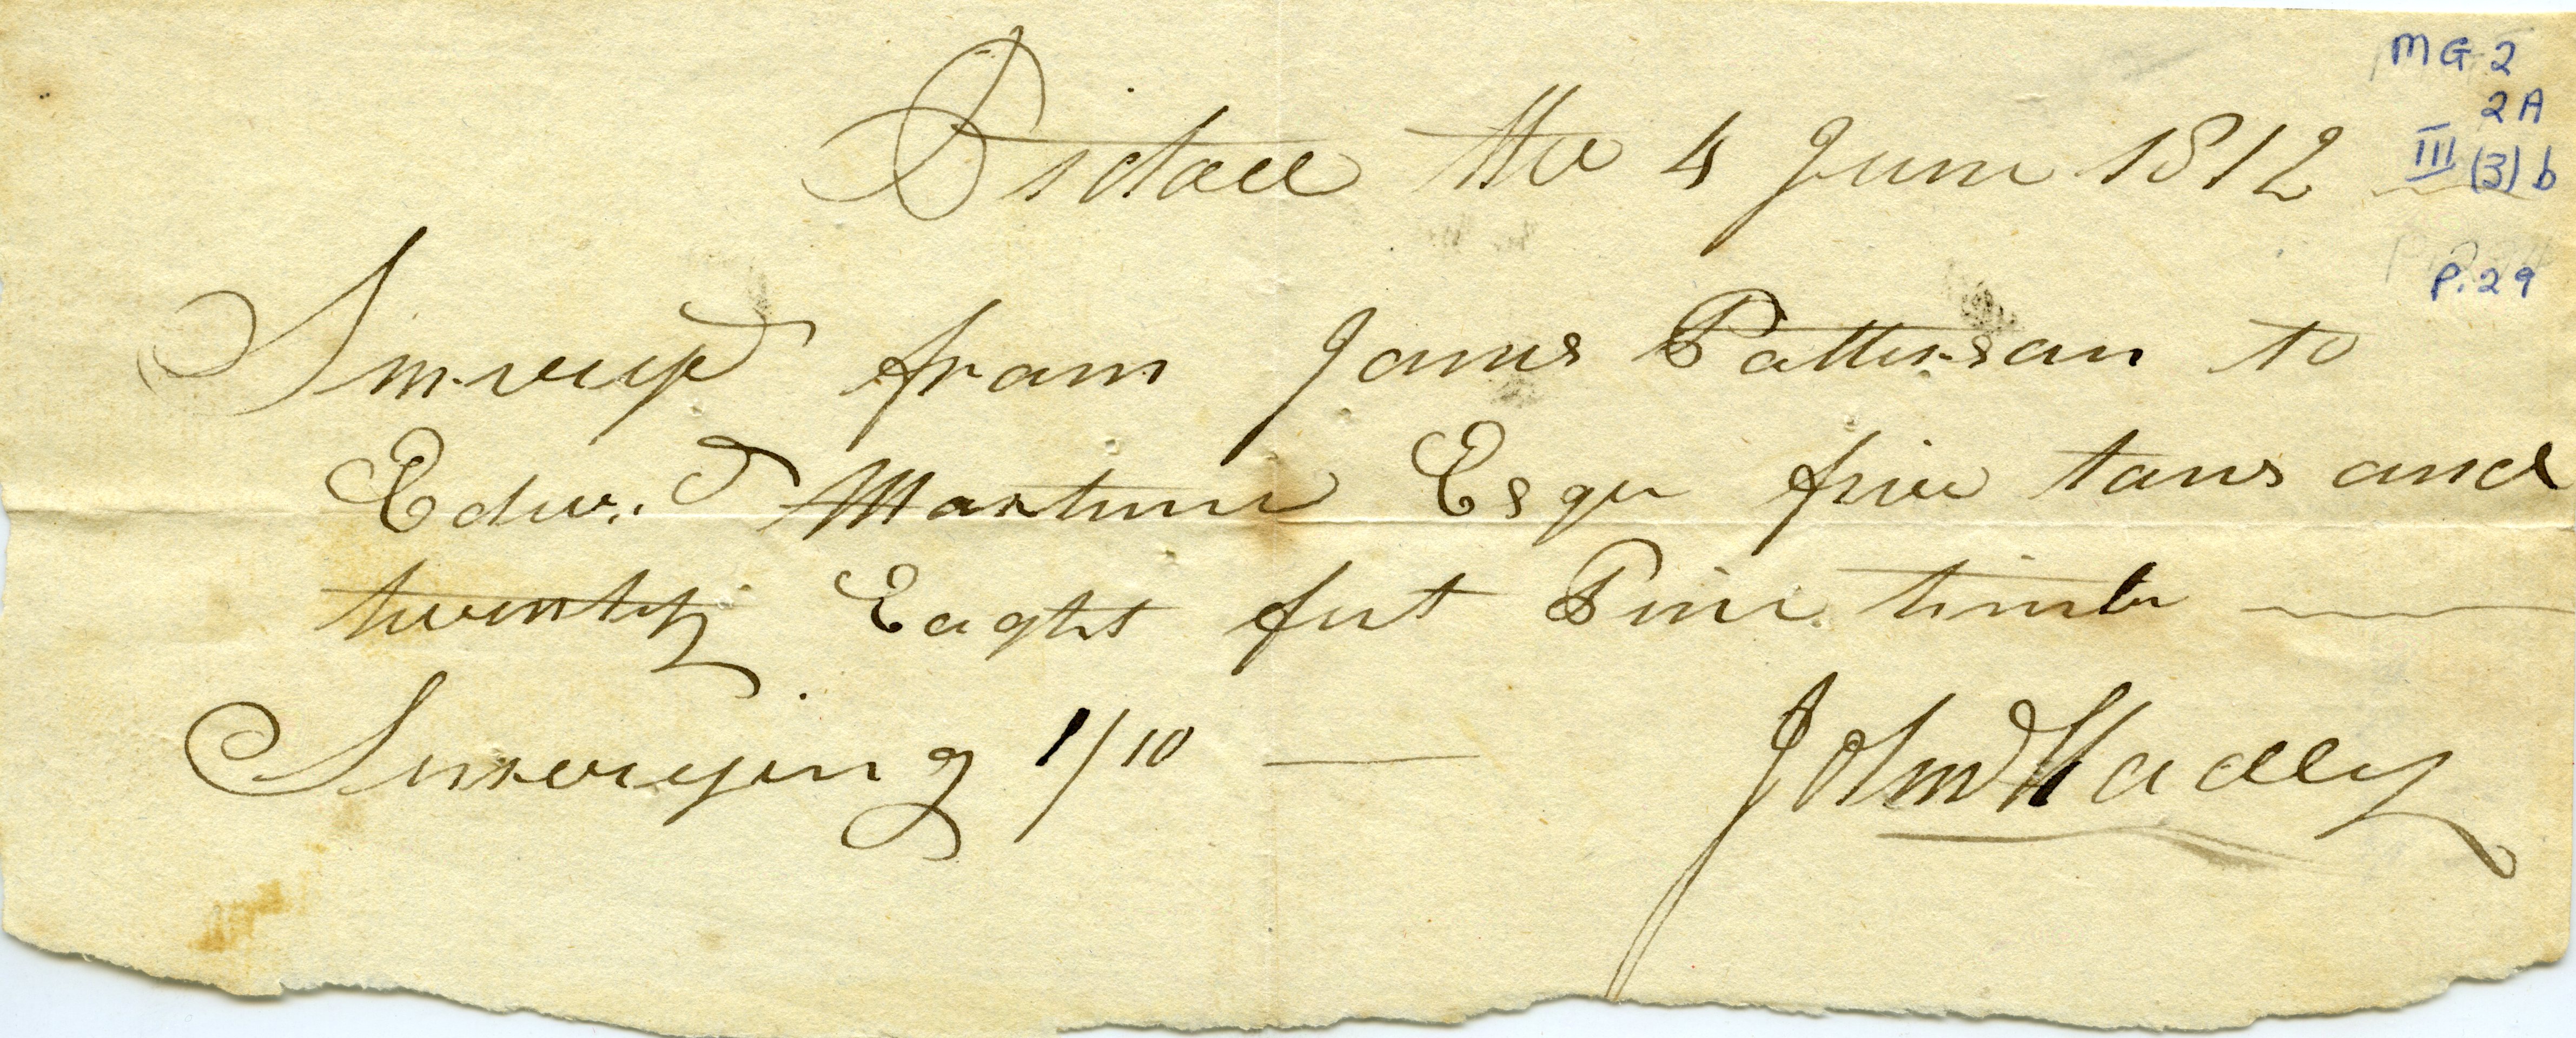 Pictou the 4 June 1812
MG 2
2A
III (3) b
P. 29
Surveyd from James Patterson to
Edwd Mortimer Esqr five tons and
twenty Eaght feet Pine timbr
Surveying 1/10
John Hadley